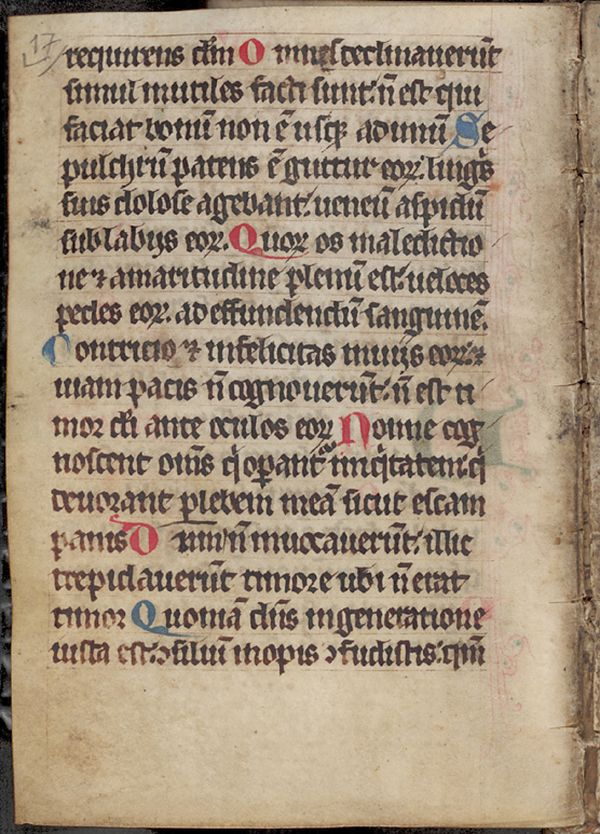 17
requirens dm̅ Omnes declinauerūt
simul inutiles facti sunt: n̅ est qui
faciat bonū non ē usq; ad unū Se
pulchrū patens ē guttur eoꝝ: linguis
suis dolose agebant: uenenū aspidū
sub labijs eoꝝ. Quoꝝ os maledictio
ne ⁊ amaritudine plenū est: ueloces
pedes eoꝝ. ad effundendū sanguinē.
Contricio ⁊ infelicitas in uijs eoꝝ: ⁊
uiam pacis n̅ cognouerūt: n̅ est ti
mor dī ante oculos eoꝝ Nonne cog
noscent om̅s qͥ oꝑantʳ iniqͥtatem: qͥ
deuorant plebem meā sicut escam
panis Dn̅m n̅ inuocauerūt: illic
trepidauerūt timore ubi n̅ erat
timor Quoniā dn̅s in generatione
iusta est: ↄsiliū inopis ↄfudistis: qm̅